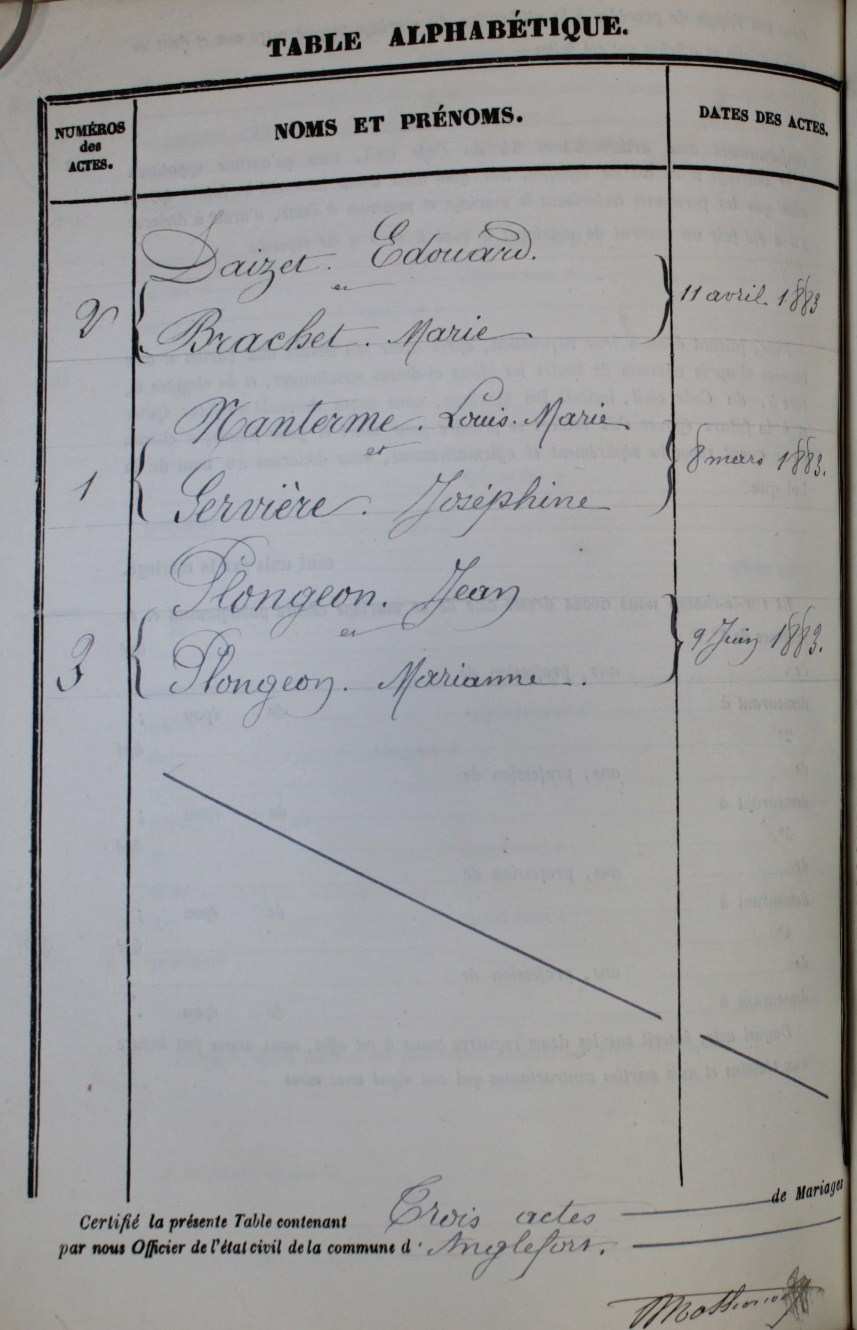 TABLE ALPHABÉTIQUE.
NUMÉROS des ACTES.
NOMS ET PRÉNOMS.
DATES DES ACTES.
Daizet. Edouard.
2 et 11 avril. 1883
Brachet. Marie
Nanterme. Louis. Marie
1 et 8 mars 1883.
Gervière. Joséphine
Plongeon. Jean
3 et 9 Juin 1883.
Plongeon. Marianne.
Certifié la présente Table contenant Trois actes de Mariages
par nous Officier de l'état civil de la commune d'Anglefort.